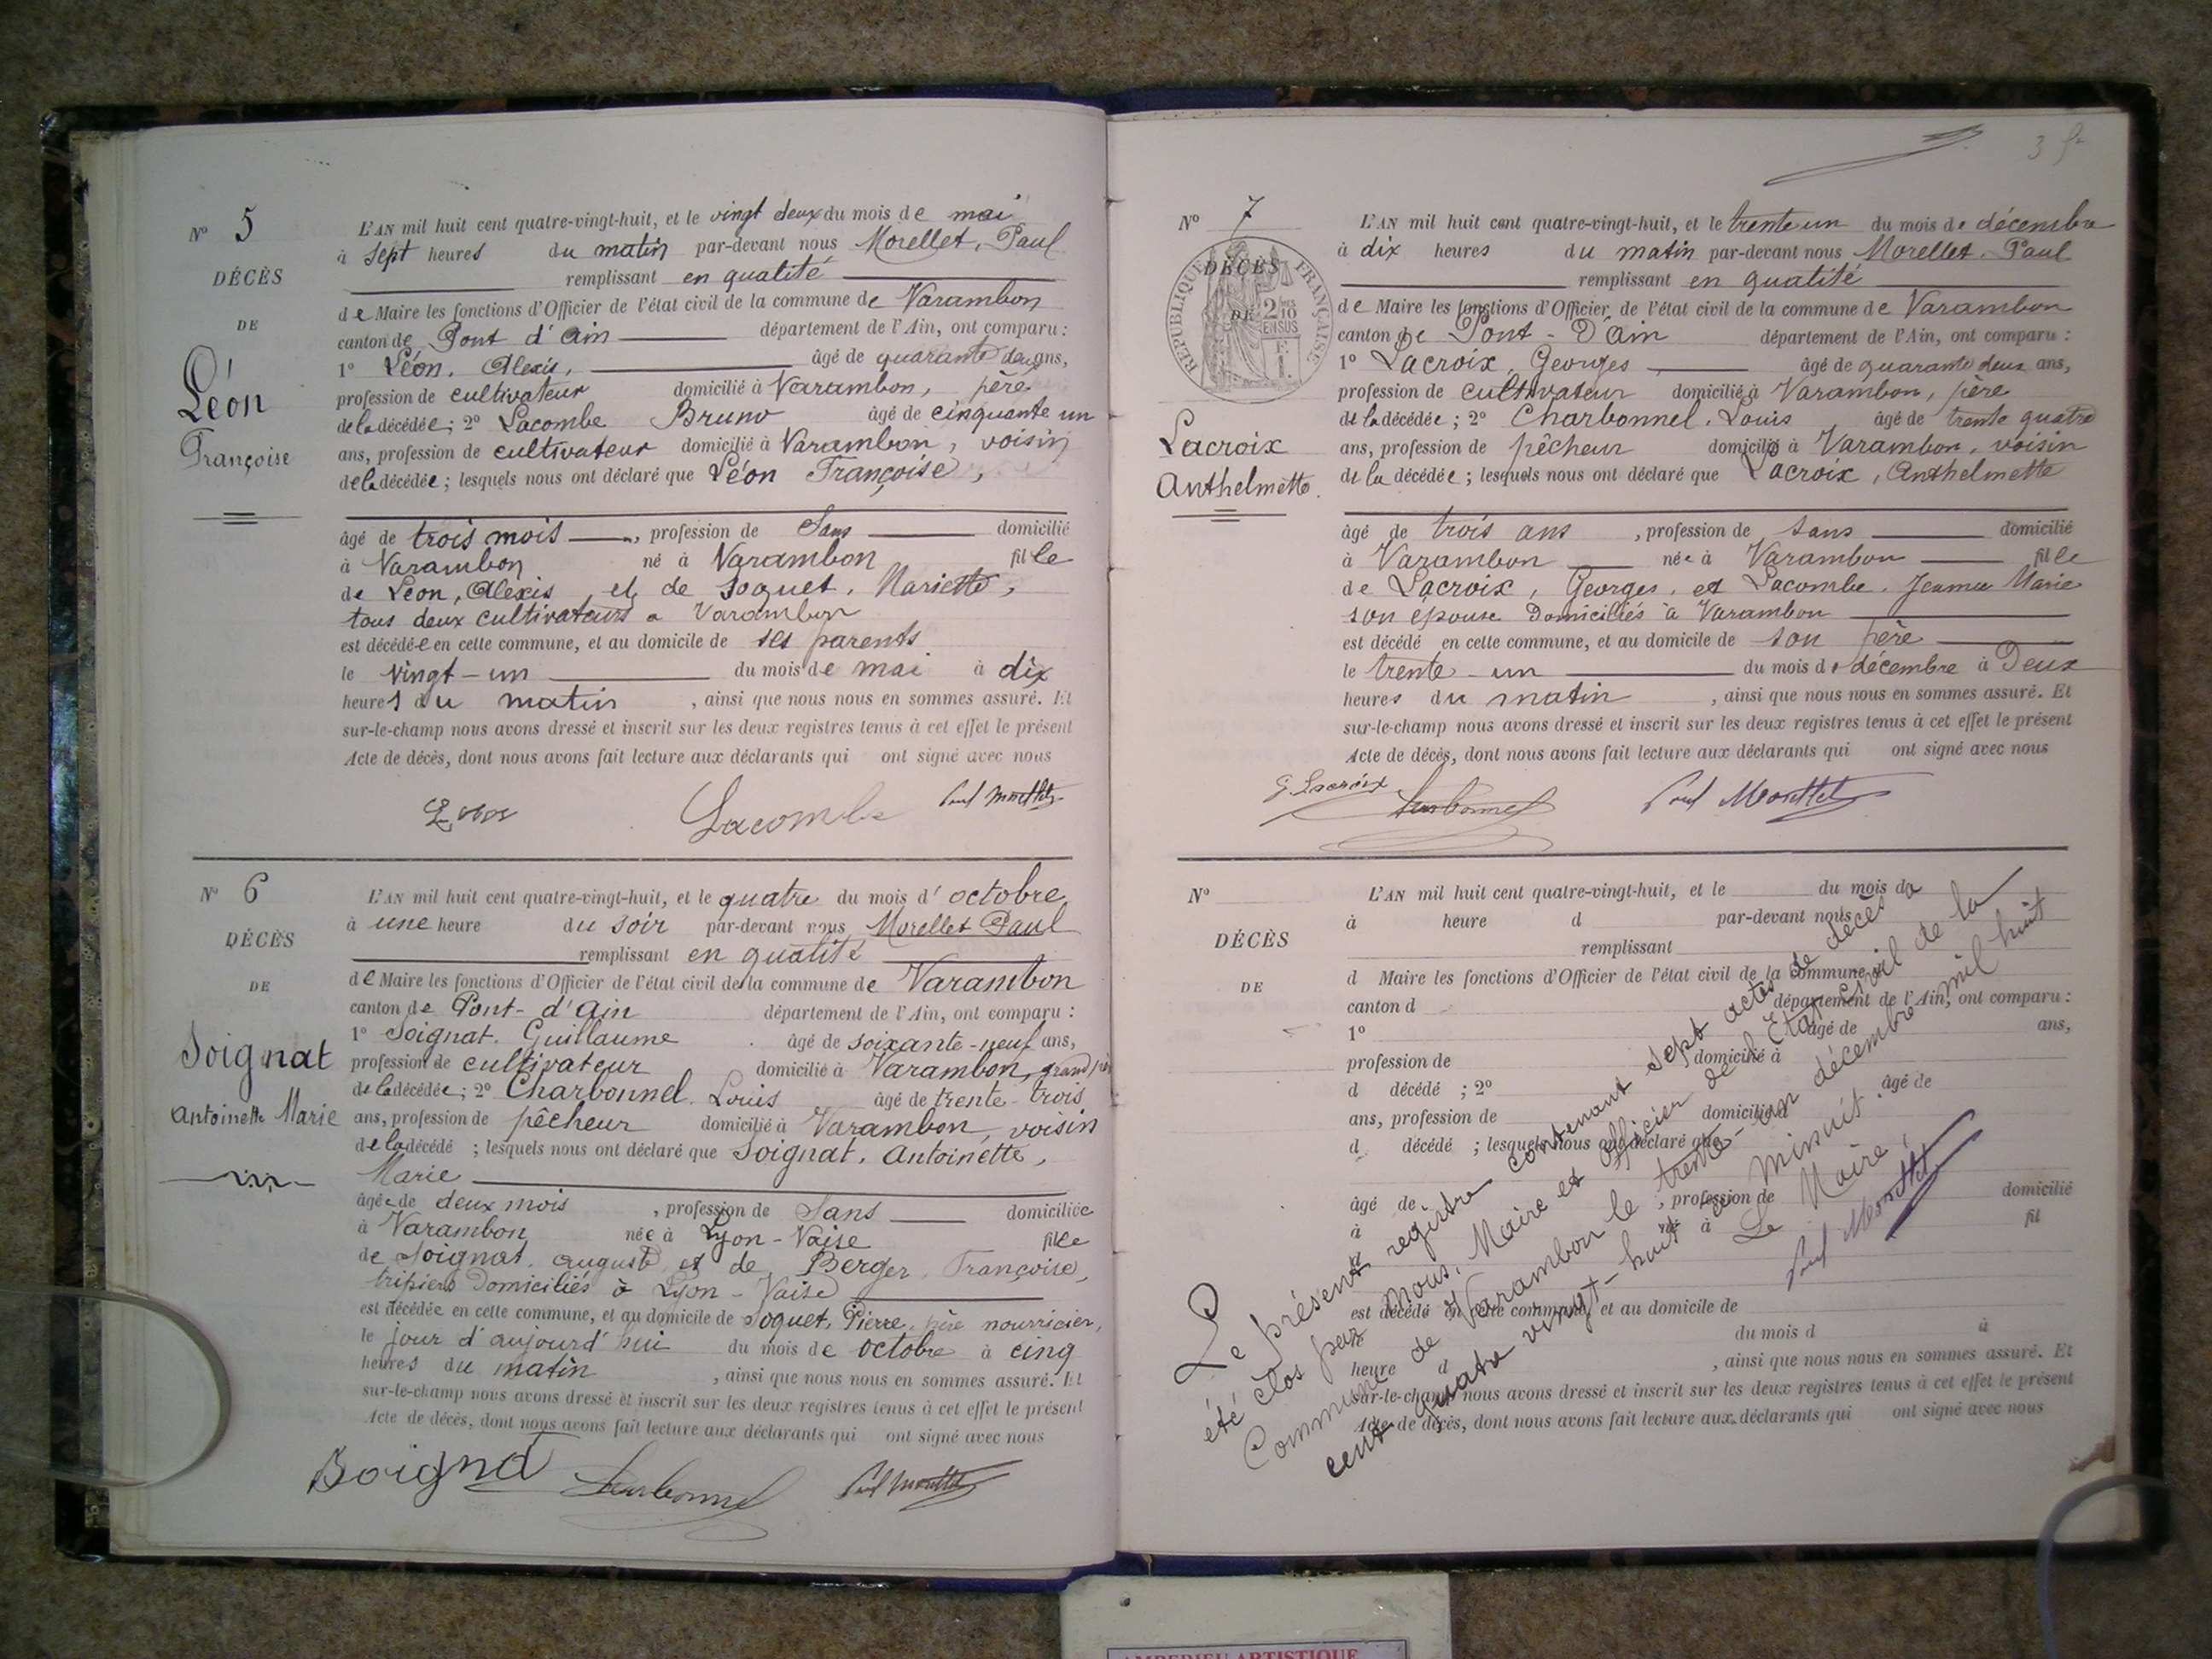 Nº 5
DÉCÈS
DE
Léon
Françoise
L'AN mil huit cent quatre-vingt-huit, et le vingt deux du mois de mai
à sept heures du matin par-devant nous Morellet, Paul
remplissant en qualité
de Maire les fonctions d'Officier de l'état civil de la commune de Varambon
canton de Pont d'ain département de l'Ain, ont comparu :
1º Léon, Alexis, âgé de quarante deux ans,
profession de cultivateur domicilié à Varambon, père
de la décédée ; 2º Lacombe Bruno âgé de cinquante un
ans, profession de cultivateur domicilié à Varambon, voisin
de la décédée ; lesquels nous ont déclaré que Léon Françoise,
âgé de trois mois, profession de Sans domicilié
à Varambon né à Varambon fille
de Léon, Alexis et de Soquet, Mariette,
tous deux cultivateurs a Varambon
est décédée en cette commune, et au domicile de ses parents
le vingt-un du mois de mai à dix
heures du matin, ainsi que nous nous en sommes assuré. Et
sur-le-champ nous avons dressé et inscrit sur les deux registres tenus à cet effet le présent
Acte de décès, dont nous avons fait lecture aux déclarants qui ont signé avec nous
Léon Lacombe Paul Morellet
Nº 6
DÉCÈS
DE
Soignat
Antoinette Marie
L'AN mil huit cent quatre-vingt-huit, et le quatre du mois d'octobre
à une heure du soir par-devant nous Morellet Paul
remplissant en qualité
de Maire les fonctions d'Officier de l'état civil de la commune de Varambon
canton de Pont-d'ain département de l'Ain, ont comparu :
1º Soignat. Guillaume âgé de soixante-neuf ans,
profession de cultivateur domicilié à Varambon, grand père
de la décédée ; 2º Charbonnel. Louis âgé de trente-trois
ans, profession de pêcheur domicilié à Varambon, voisin
de la décédé ; lesquels nous ont déclaré que Soignat, Antoinette,
Marie
âgée de deux mois, profession de Sans domiciliée
à Varambon née à Lyon-Vaise fille
de Soignat, auguste et de Berger, Françoise,
tripiers Domiciliés à Lyon-Vaise
est décédée en cette commune, et au domicile de Soquet, Pierre, père nourricier,
le jour d'aujourd'hui du mois de octobre à cinq
heures du matin, ainsi que nous nous en sommes assuré. Et
sur-le-champ nous avons dressé et inscrit sur les deux registres tenus à cet effet le présent
Acte de décès, dont nous avons fait lecture aux déclarants qui ont signé avec nous
Soignat Charbonnel Paul Morellet
Nº 7
DÉCÈS
DE
RÉPUBLIQUE FRANÇAISE
2/10 EN SUS
Lacroix
Anthelmette.
L'AN mil huit cent quatre-vingt-huit, et le trente un du mois de décembre
à dix heures du matin par-devant nous Morellet. Paul
remplissant en qualité
de Maire les fonctions d'Officier, de l'état civil de la commune de Varambon
canton de Pont-D'ain département de l'Ain, ont comparu :
1º Lacroix, Georges âgé de quarante deux ans,
profession de cultivateur domicilié à Varambon, père
de la décédée ; 2º Charbonnel. Louis âgé de trente quatre
ans, profession de pêcheur domicilié à Varambon, voisin
de la décédée ; lesquels nous ont déclaré que Lacroix, Anthelmette
âgé de trois ans, profession de sans domicilié
à Varambon née à Varambon fille
de Lacroix, Georges, et Lacombe. Jeanne Marie
son épouse Domiciliés à Varambon
est décédé en cette commune, et au domicile de son père
le trente-un du mois de décembre à Deux
heures du matin, ainsi que nous nous en sommes assuré. Et
sur-le-champ nous avons dressé et inscrit sur les deux registres tenus à cet effet le présent
Acte de décès, dont nous avons fait lecture aux déclarants qui ont signé avec nous
G. Lacroix Charbonnel Paul Morellet
Nº
DÉCÈS
DE
L'AN mil huit cent quatre-vingt-huit, et le du mois d
à heure d par-devant nous
remplissant
d Maire les fonctions d'Officier de l'état civil de la commune d
canton d département de l'Ain, ont comparu :
1º âgé de ans,
profession de domicilié à
d décédé ; 2º âgé de
ans, profession de domicilié à
d décédé ; lesquels nous ont déclaré que
âgé de, profession de domicilié
à né à fil
d
est décédé en cette commune, et au domicile de
le du mois d à
heure d, ainsi que nous nous en sommes assuré. Et
sur-le-champ nous avons dressé et inscrit sur les deux registres tenus à cet effet le présent
Acte de décès, dont nous avons fait lecture aux déclarants qui ont signé avec nous
Le présent registre contenant sept actes de décès a
été clos par nous, Maire et Officier de l'Etat civil de la
Commune de Varambon le trente-un décembre mil huit
cent quatre vingt-huit à minuit.
Le Maire,
Paul Morellet
AMBERIEU ARTISTIQUE